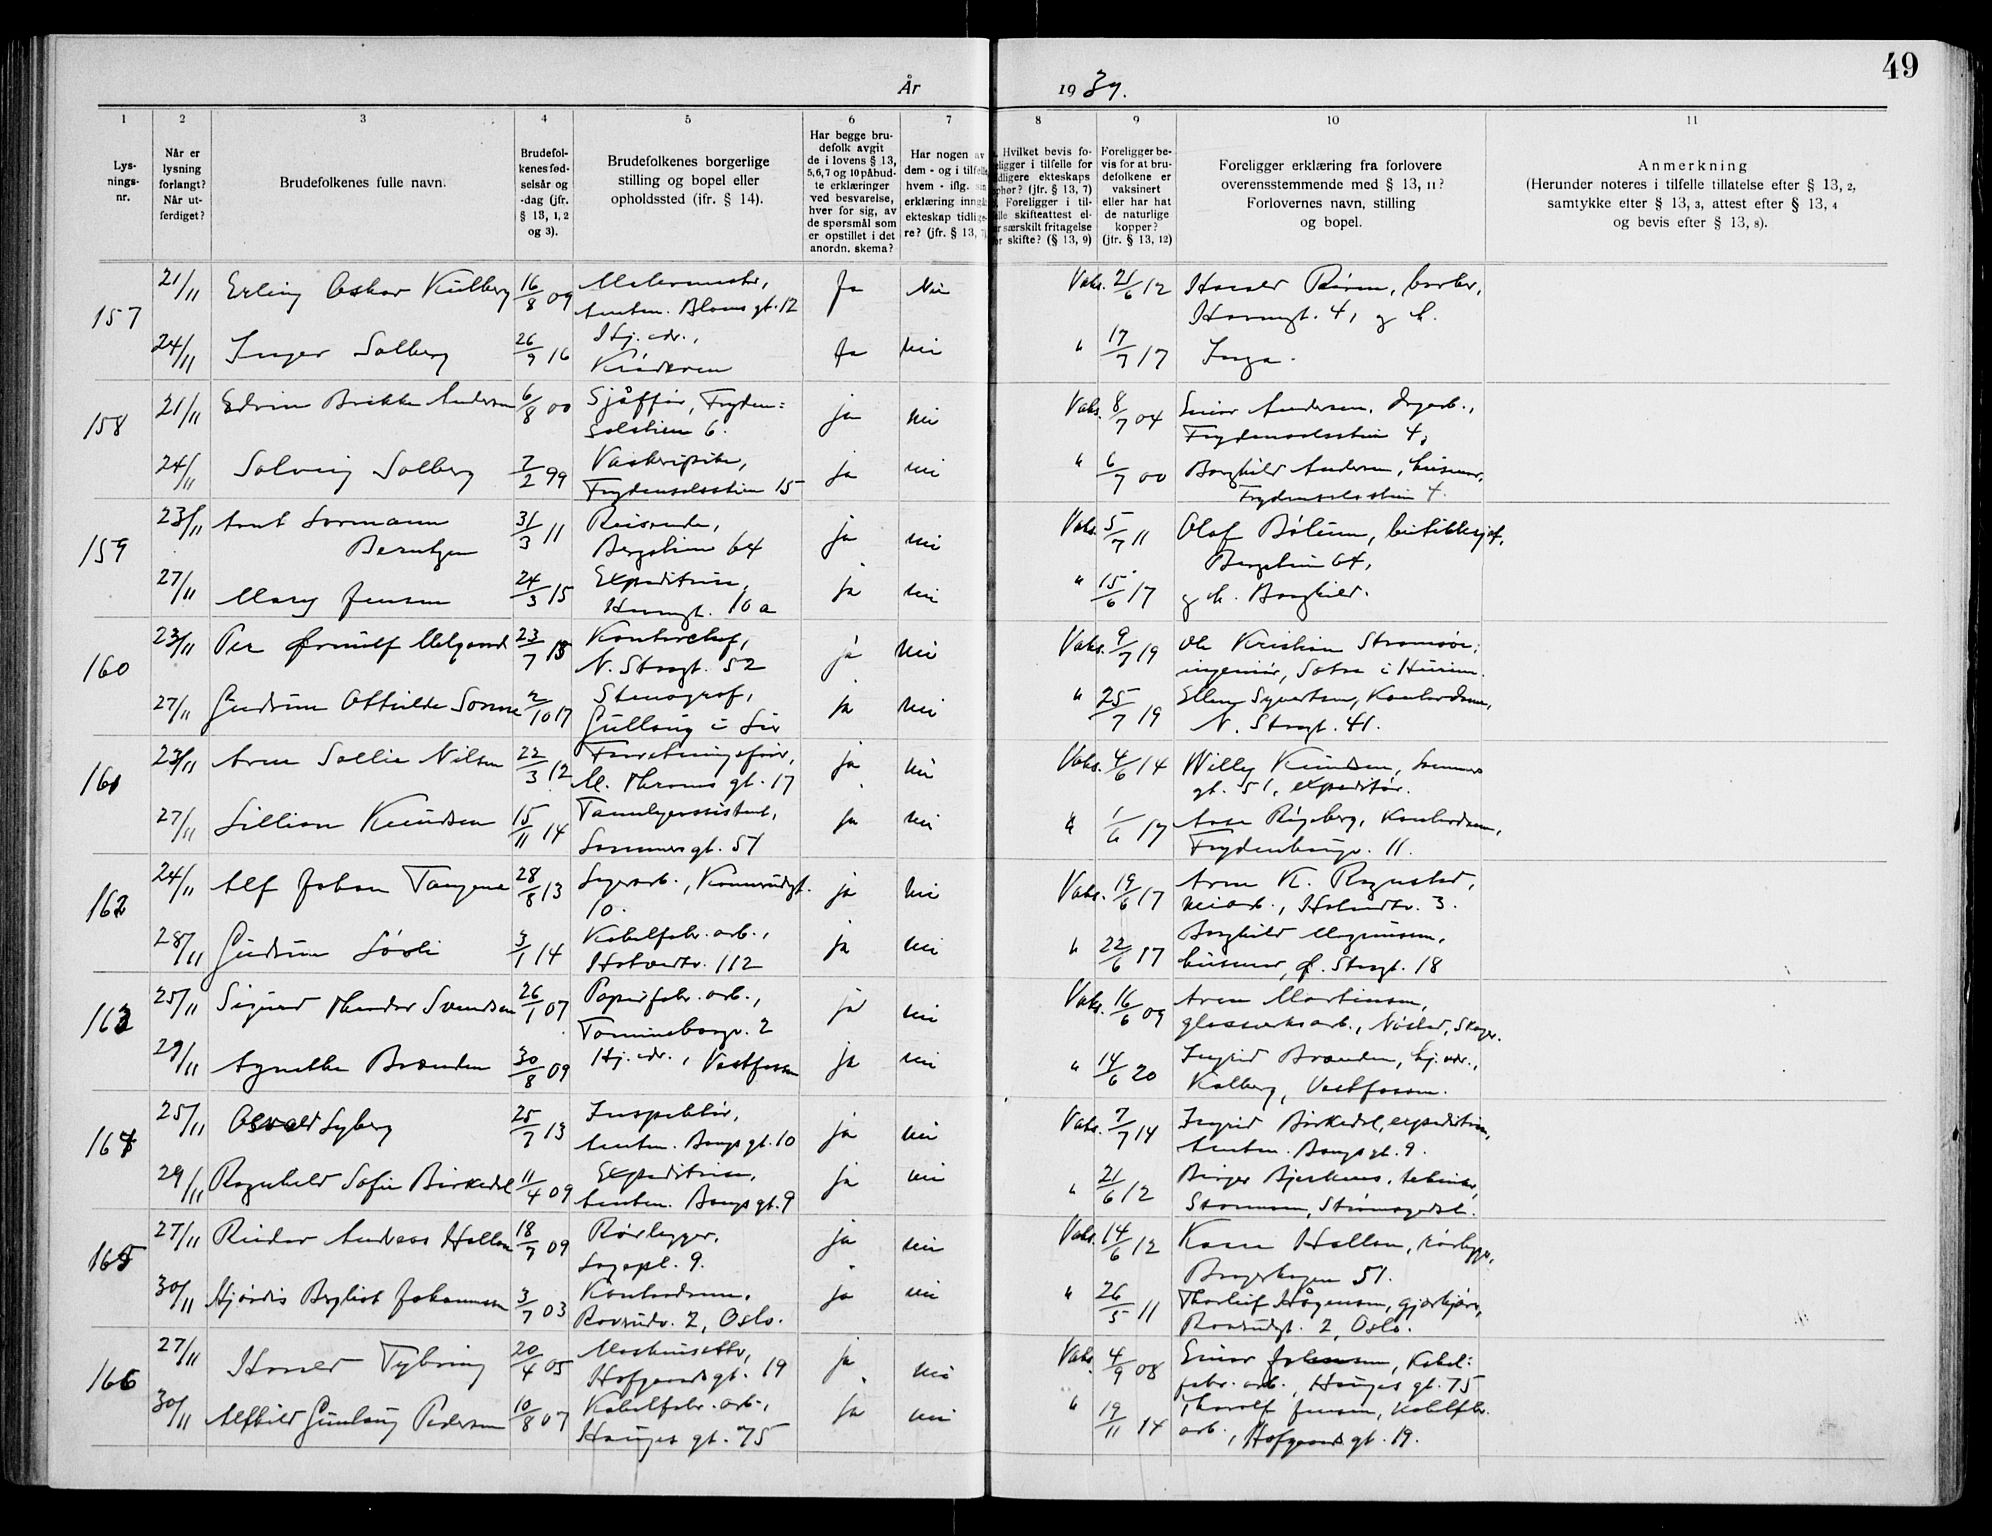 49
År 1939.
1 2 3 4 5 6 7 8 9 10 11
Lys-
nings-
nr.
Når er
lysning
forlangt?
Når ut-
ferdiget?
Brudefolkenes fulle navn.
Brudefol-
kenes fød-
selsår og
-dag (jfr.
§ 13, 1, 2
og 3).
Brudefolkenes borgerlige
stilling og bopel eller
opholdssted (ifr. § 14).
Har begge bru-
defolk avgit
de i lovens § 13,
5,6,7 og 10 påbud-
te erklæringer
ved besvarelse,
hver for sig, av
de spørsmål som
er opstillet i det
anordn. skema?
Har nogen av
dem - og i tilfelle
hvem - iflg. sin
erklæring inngå
ekteskap tidlige-
re? (jfr. § 13, 7)
Hvilket bevis fo-
religger i tilfelle for
tidligere ekteskaps
ophør? (jfr. § 13, 7)
Foreligger i til-
felle skifteattest el-
ler særskilt fritagelse
for skifte? (§ 13, 9)
Foreligger be-
vis for at bru-
defolkene er
vaksinert
eller har hat
de naturlige
kopper?
(jfr. § 13, 12)
Foreligger erklæring fra forlovere
overensstemmende med § 13, 11?
Forlovernes navn, stilling
og bopel.
Anmerkning
(Herunder noteres i tilfelle tillatelse efter § 13, 2,
samtykke efter § 13, 3, attest efter § 13, 4
og bevis efter § 13, 8).
157
21/11 Erling Oskar Kullberg 16/8 09 Malermester, ja Nei Vaks. 21/6 12 Harald, barber,
Anten. Bloms gt. 12 Havnegt. 4, g h.
24/11 Inger Solberg 26/9 16 Hj. vdr., ja nei " 17/7 17 Inga.
158
21/11 Edvin Brikke Andersen 6/8 00 Sjåffør, Fryden= ja nei Vaks. 8/7 04 Einar Andersen,
salstien 6. Frydensalsstien 4,
24/11 Solveig Solberg 7/2 99 Vaskeripike, ja nei " 6/7 00 Borghild Andersen, husmor,
Frydensalsstien 15 Frydensalsstien 4.
159
23/11 Arnt Lormann 31/3 11 Reisende, ja nei Vaks. 5/7 11 Olaf Bølum, butikksjef,
Berntzen Bergstien 64 Bergstien 64,
27/11 Mary Jensen 24/3 15 Expeditrise, ja nei " 15/6 17 g h. Borghild.
Havnegt. 10 a
160
23/11 Per Ørnulf Melgaard 23/7 13 Kontorchef, ja nei Vaks. 9/7 19 Ole Kristian Stramsøe,
N. Storgt. 52 ingeniør, Sætre i Hurum.
27/11 Gudrun Ottilde Sonne 2/10 17 Stenograf, ja nei " 25/7 19 Ellen Syvertsen, Kontordame,
Gullaug i Lier N. Storgt. 41.
161
23/11 Arne Sollie Nilsen 22/3 12 Forretningsfører, ja nei Vaks. 4/6 14 Willy Knudsen, Sommers
M. Thranes gt. 17 gt. 51, expeditør.
27/11 Lillian Knudsen 15/11 14 Tannlegeassistent, ja nei " 1/6 17 Aase Rygeberg, Kontordame,
Sommers gt. 51 Frydenhaugv. 11.
162
24/11 Alf Johan Tangene 28/8 13 Lagerarb., Konnerudgt. ja nei Vaks. 19/6 17 Arne K. Rognstad,
10. veiarb., 3.
28/11 Gudrun Løvli 3/1 14 Kabelfabr. arb., ja nei " 22/6 17 Borghild Magnussen,
Hotvedtv. 112 husmor, Ø. Storgt. 18
163
25/11 Sigurd Theodor Svendsen 26/1 07 Papirfabr. arb., ja nei Vaks. 16/6 09 Arne Martinsen,
2 glassverksarb., Nøsted, Skoger.
29/11 Agnethe Brænden 30/8 09 Hj. vdr., Vestfossen ja nei " 14/6 20 Ingrid Brænden, hj. vdr.,
Kolberg, Vestfossen.
164
25/11 Osvald Lyberg 25/7 13 Inspektør, ja nei Vaks. 7/7 14 Ingrid Birkedal, expeditrise,
Anten. Bangs gt. 10 Anten. Bangs gt. 9.
29/11 Ragnhild Sofie Birkedal 11/4 09 Expeditrise, ja nei " 21/6 12 Birger Bjerknes, tekniker,
Anten. Bangs gt. 9
165
27/11 Reidar Andreas Hallan 18/7 09 Rørlegger, ja nei Vaks. 14/6 12 Kaare Hallan, rørlegger,
Sagapl. 9. Bragerhagen 51.
30/11 Hjørdis Bergliot Johannessen 3/7 03 Kontordame, ja nei " 26/5 11 Thorleif Hågensen,
2, Oslo. 2, Oslo.
166
27/11 Harald Tybring 20/4 05 Maskinsetter, ja nei Vaks. 4/9 08 Einar Johansen, Kabel=
Hofgaards gt. 19 fabr. arb., Hauges gt. 75
30/11 Alfhild Gunlaug Pedersen 10/8 07 Kabelfabr. arb., ja nei " 19/11 14 Thorolf Jensen, Kabelfbr.
Hauges gt. 75 arb., Hofgaards gt. 19.